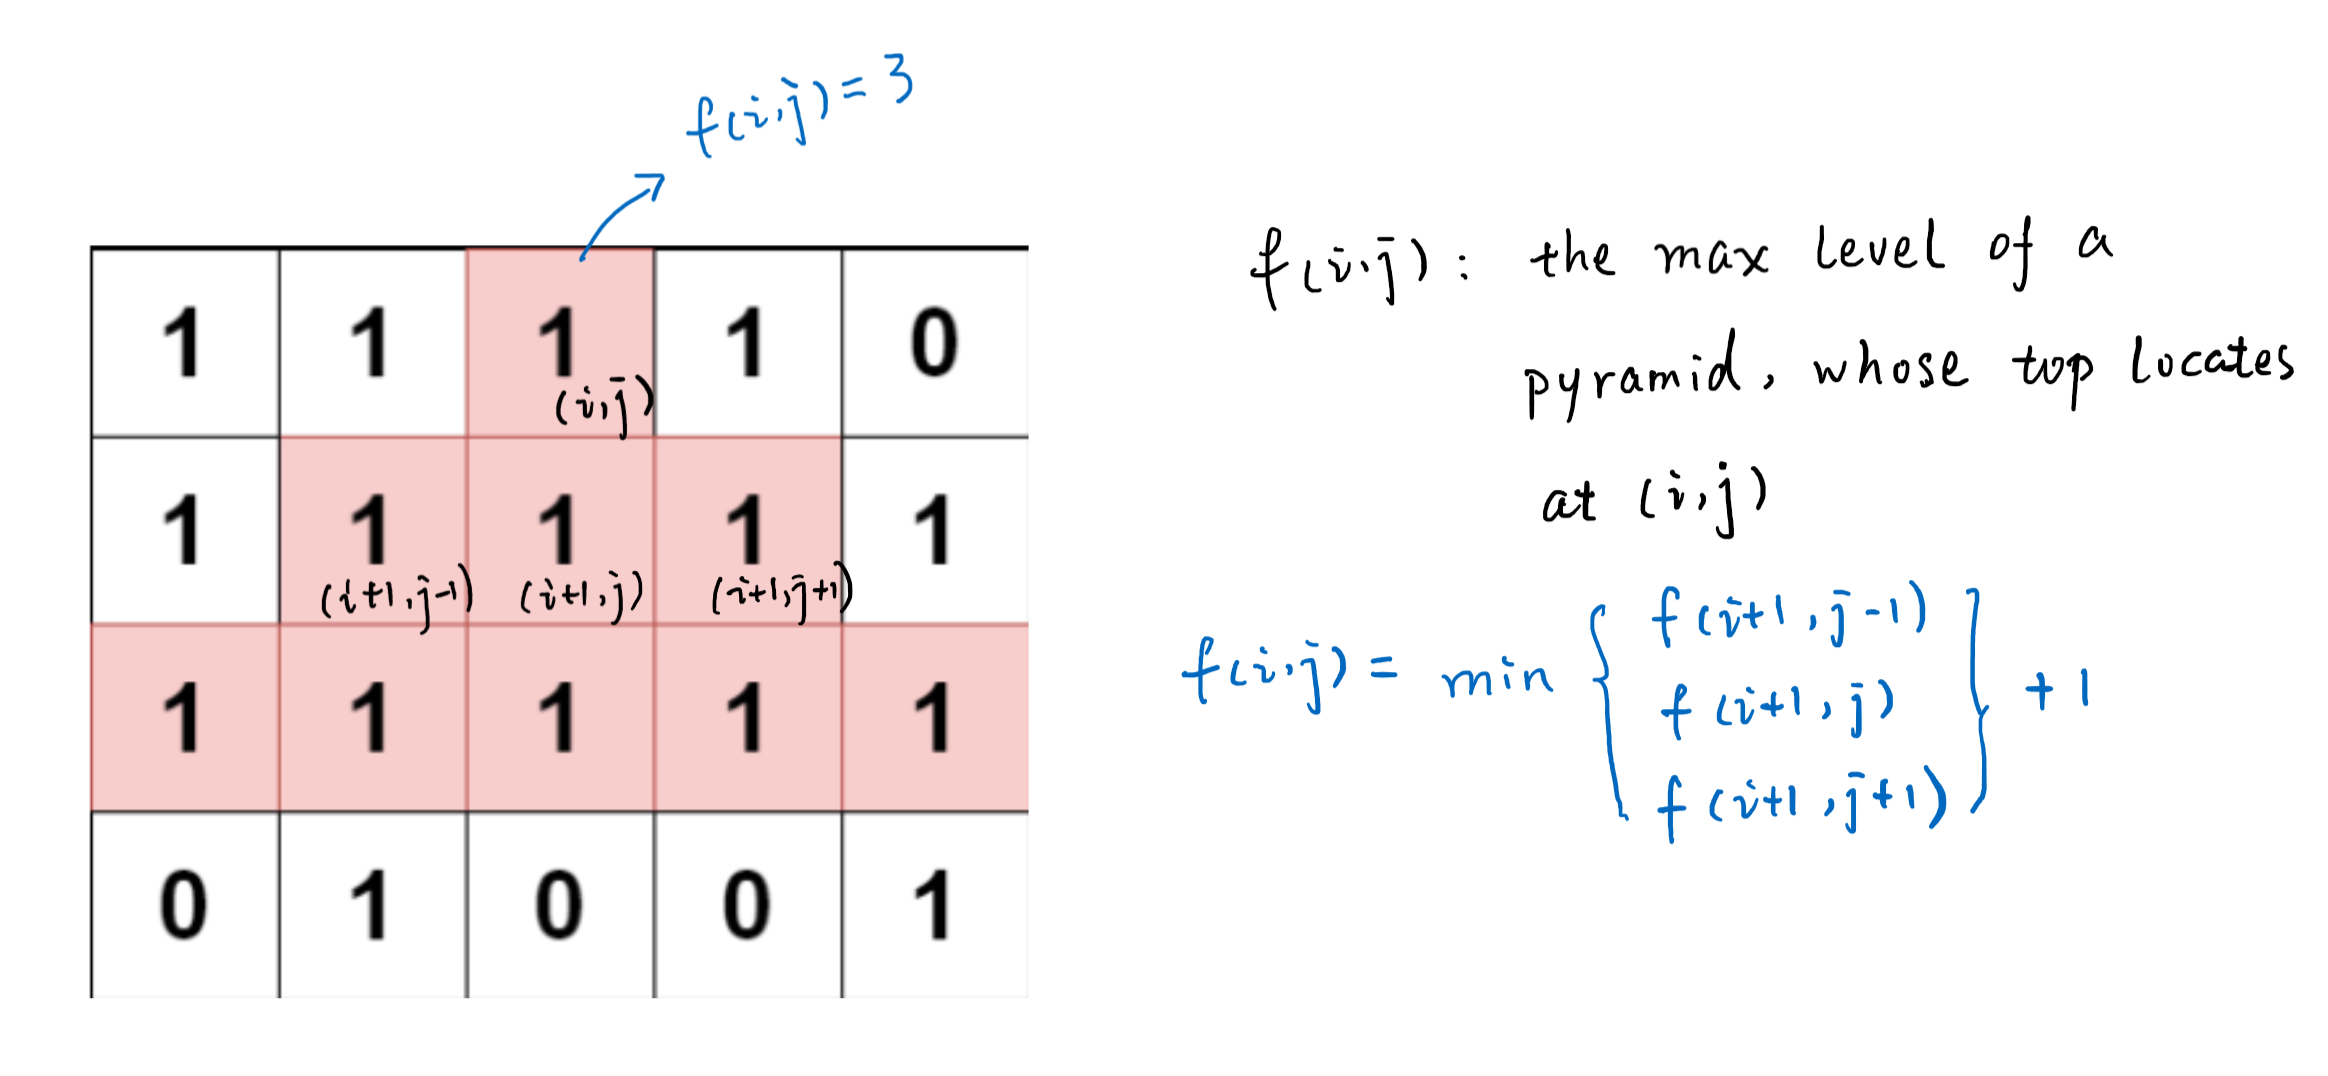 f(i,j) = 3
1 1 1 1 0
(i,j)
1 1 1 1 1
(i+1,j-1) (i+1,j) (i+1,j+1)
1 1 1 1 1
0 1 0 0 1
f(i,j) : the max level of a
pyramid, whose top locates
at (i,j)
f(i+1,j-1)
f(i,j) = min { f(i+1,j) } +1
f(i+1,j+1)